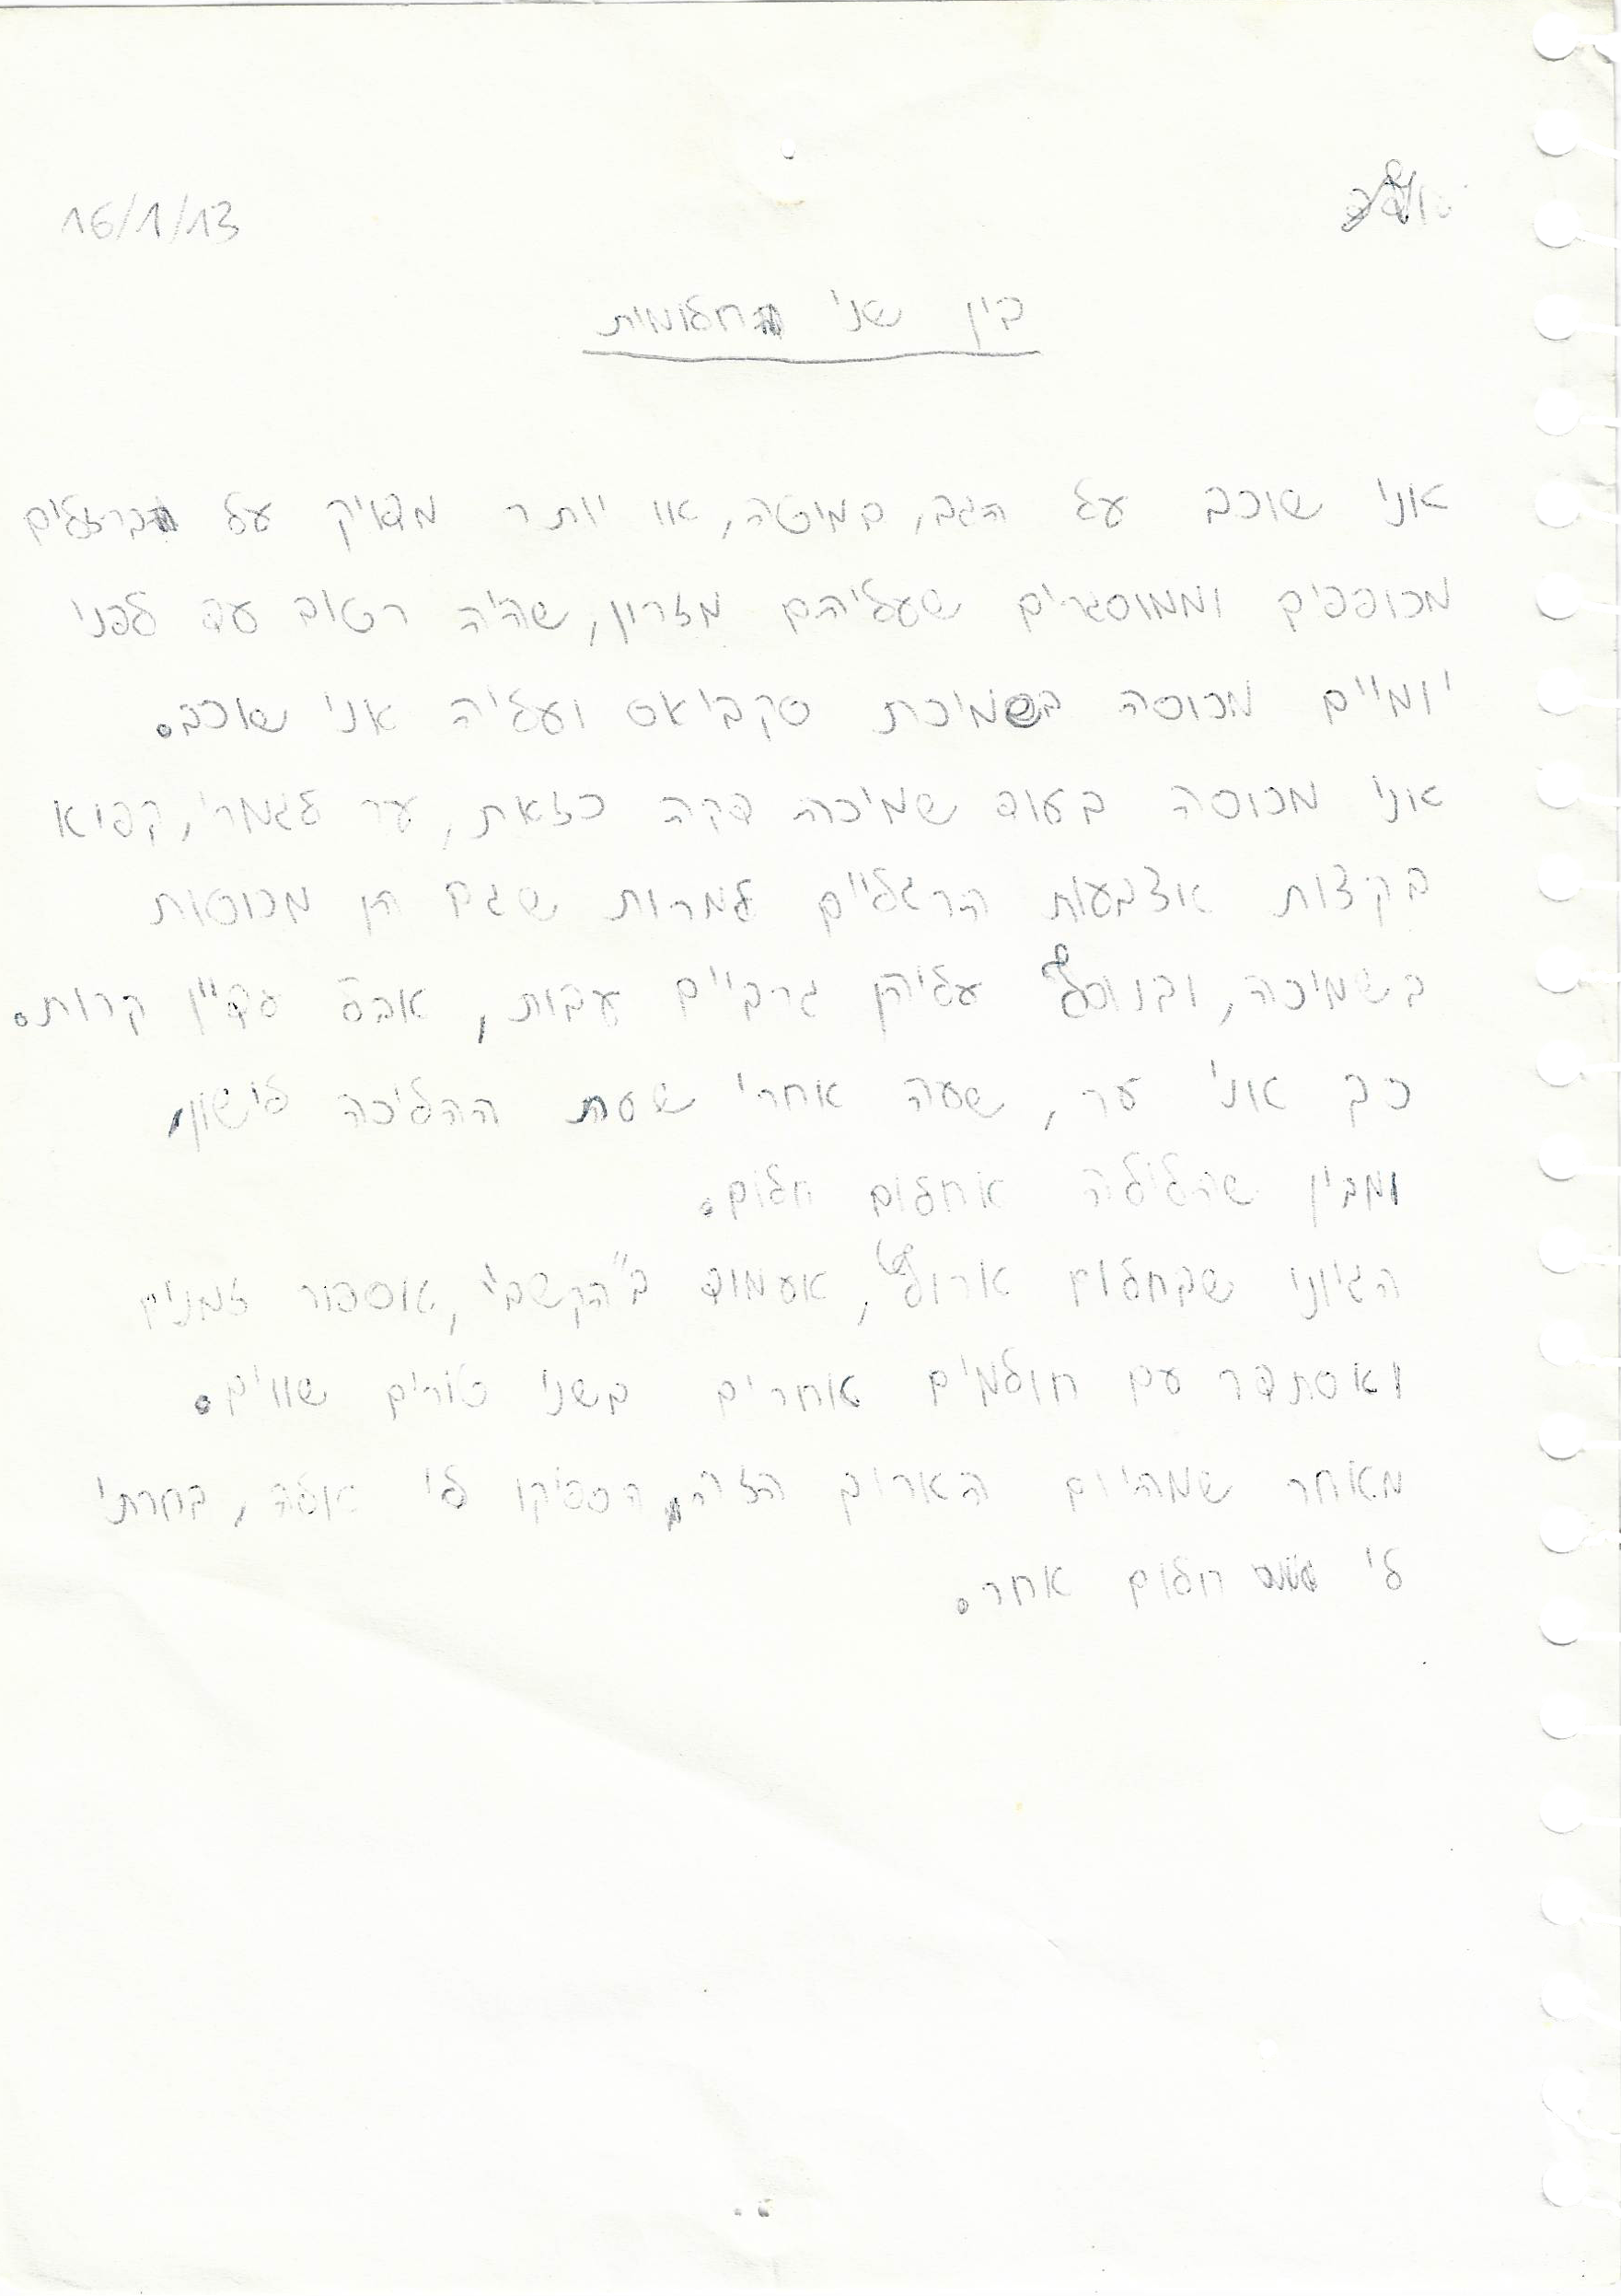 16/1/13
בין שני חלומות
אני שוכב על הגב, במיטה, או יותר מדויק על ברזלים
מכופפים וממוסגרים שעליהם מזרון, שהיה רטוב עד לפני
יומיים מכוסה בשמיכת סקביאס ועליה אני שוכב.
אני מכוסה בעוד שמיכה דקה כזאת, ער לגמרי, קפוא
בקצות אצבעות הרגליים למרות שגם הן מכוסות
בשמיכה, ובנוסף עליהן גרביים עבות, אבל עדיין קרות.
כך אני ער, שעה אחרי שעת ההליכה לישון,
ומבין שהלילה אחלום חלום.
הגיוני שבחלום ארוץ, אעמוד ב"הקשב", אספור זמנים
ואסתדר עם חולמים אחרים בשני טורים שווים.
מאחר שמהיום הארוך הזה הספיקו לי אלה, בחרתי
לי חלום אחר.